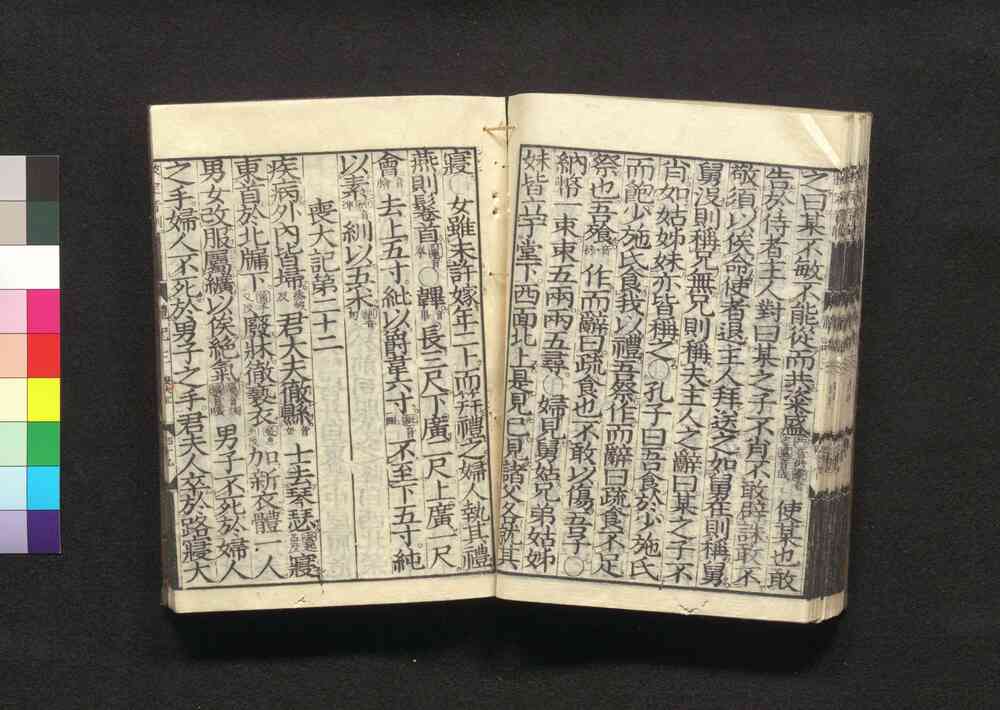 之曰某不敏不能從而共粢盛使某也敢
告於侍者主人對曰某之子不肖不敢辟誅敢不
敬須以俟命使者退主人拜送之如舅在則稱舅
舅沒則稱兄無兄則稱夫主人之辭曰某之子不
肖如姑姊妹亦皆稱之○孔子曰吾食於少施氏
而飽少施氏食我以禮吾祭作而辭曰疏食不足
祭也吾飧作而辭曰疏食也不敢以傷吾子○
納幣一束束五兩兩五尋○婦見舅姑兄弟姑姊
妹皆立于堂下西面北上是見已見諸父各就其
寢○女雖未許嫁年二十而筓禮之婦人執其禮
燕則鬈首○韠長三尺下廣二尺上廣一尺
會去上五寸紕以爵韋六寸不至下五寸純
以素紃以五采
喪大記第二十二
疾病外內皆埽君大夫徹縣士去琴瑟寢
東首於北牖下廢牀徹褻衣加新衣體一人
男女改服屬纊以俟絕氣男子不死於婦人
之手婦人不死於男子之手君夫人卒於路寢大